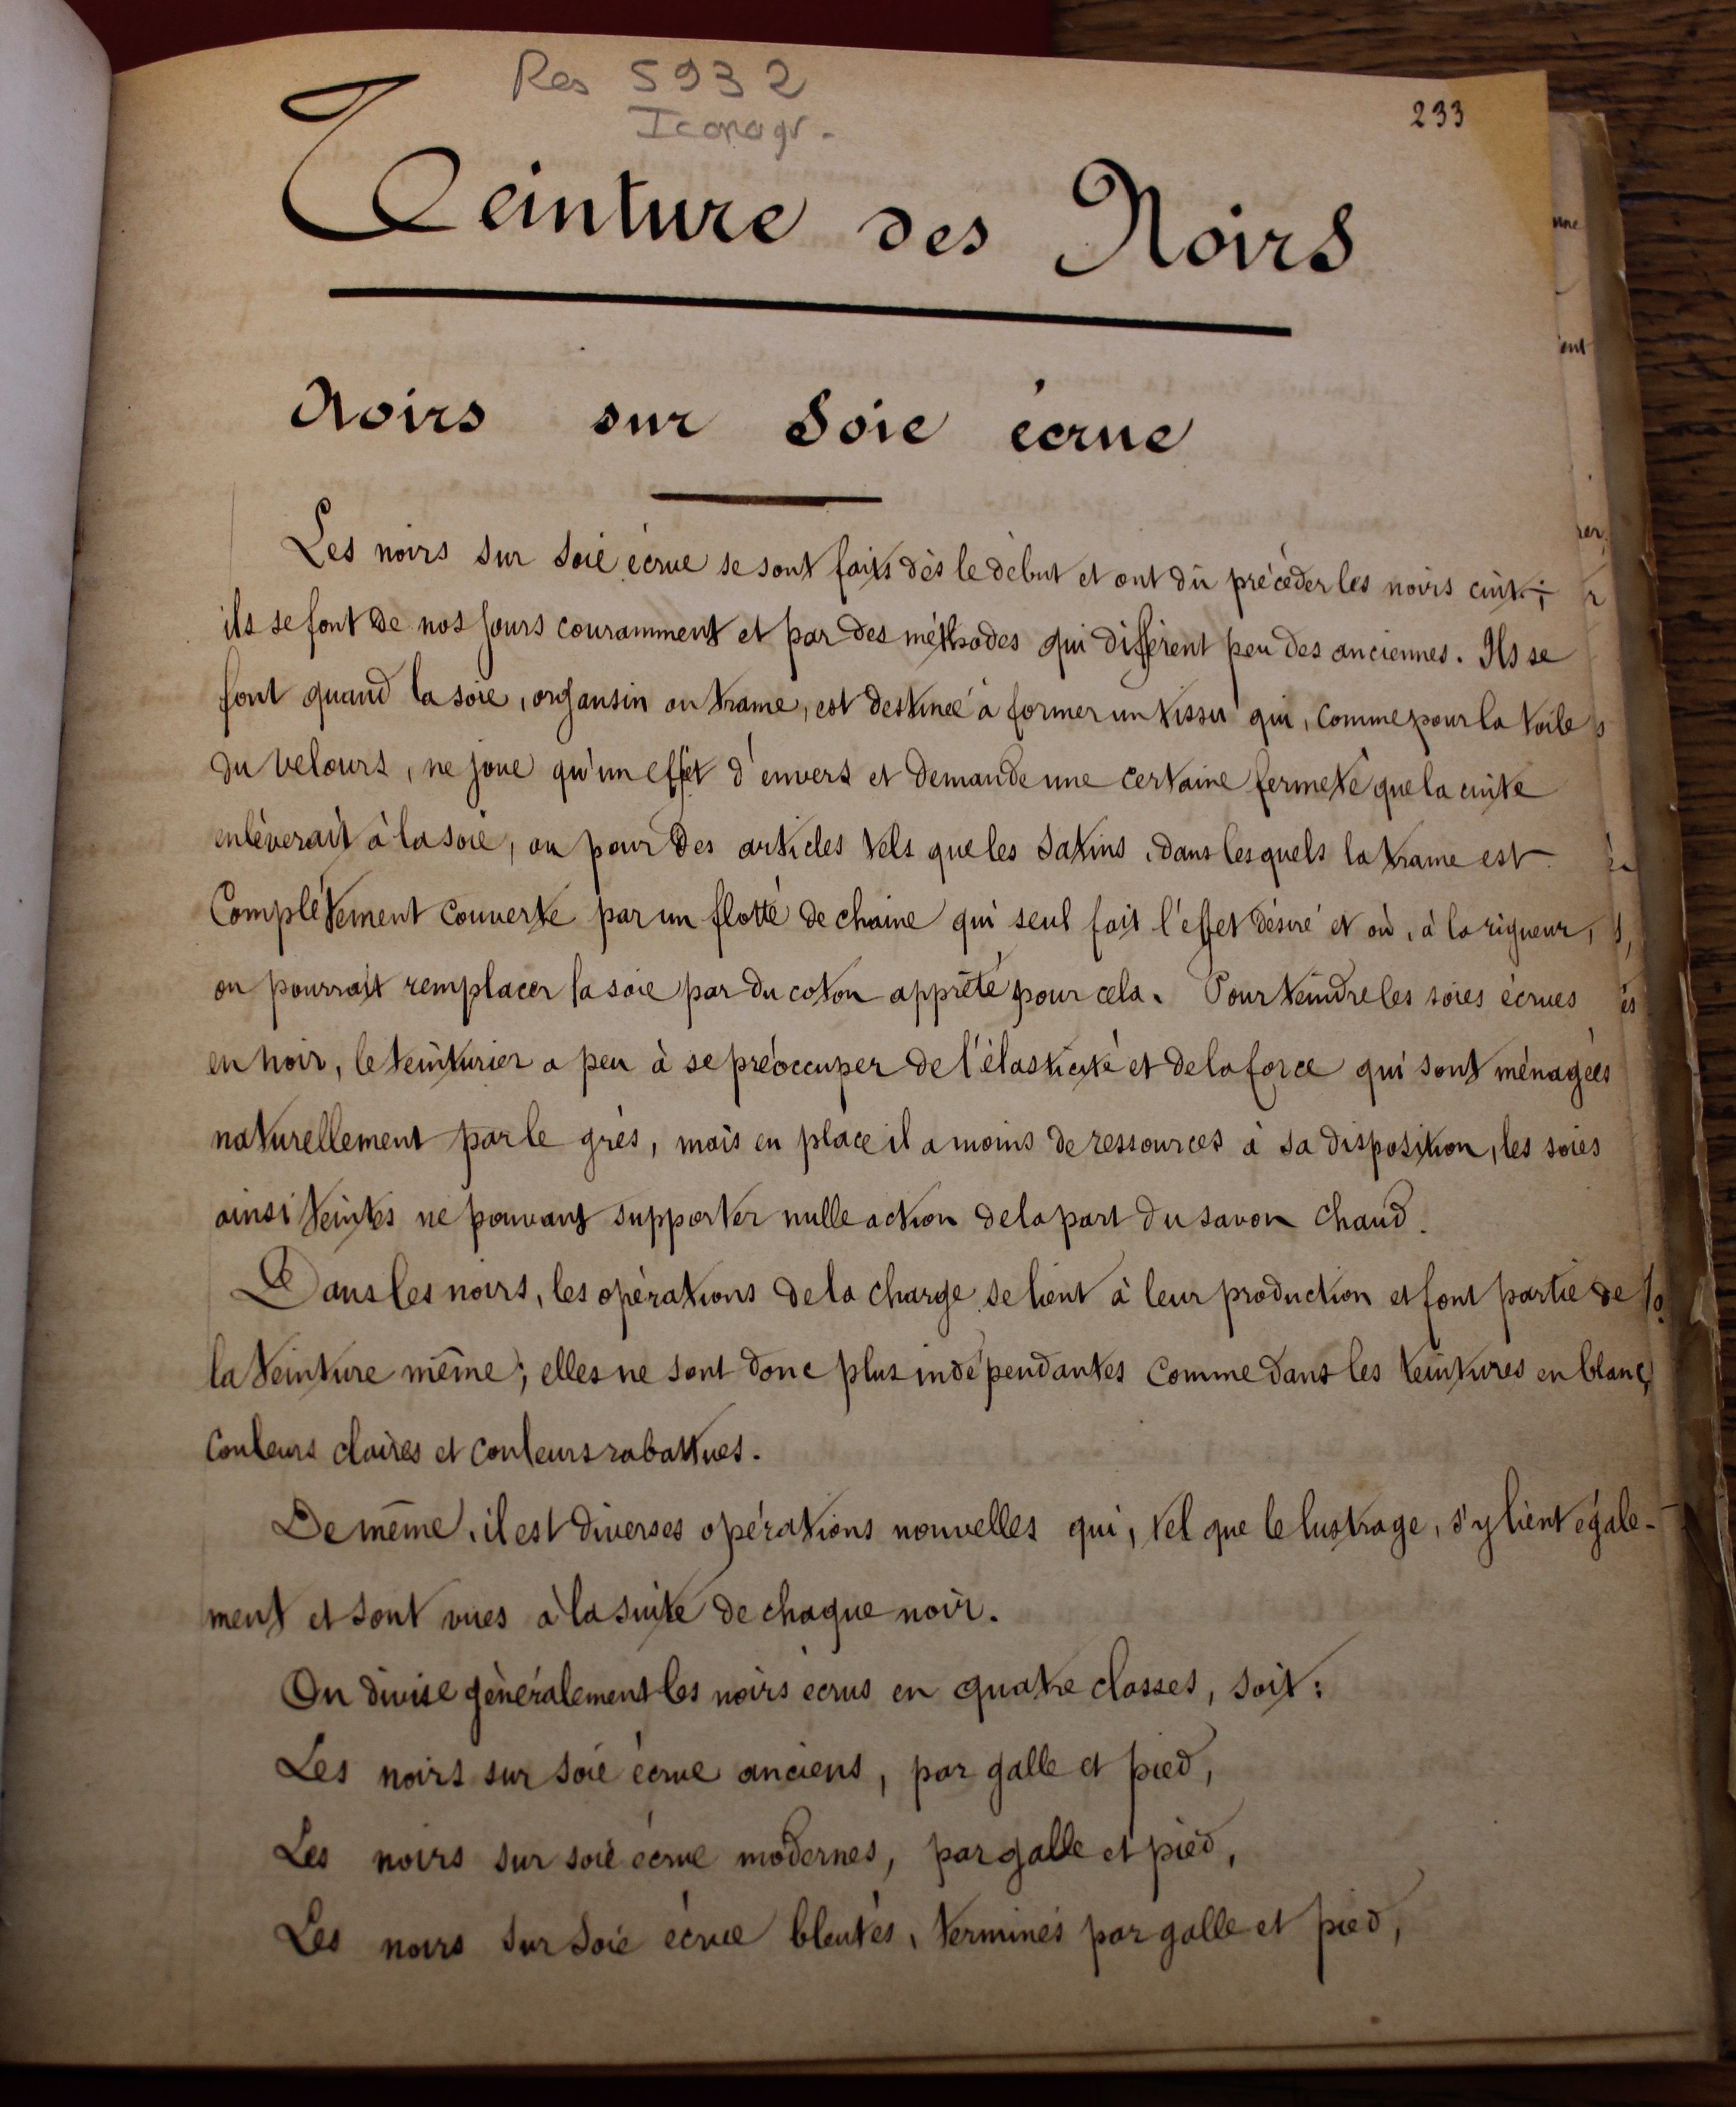 Res 5932
Iconogr.
233
Teinture des Noirs
Noirs sur Soie écrue
Les noirs sur soie écrue se sont faits dès le début et ont dû précéder les noirs cuits;
ils se font de nos jours couramment et par des méthodes qui diffèrent peu des anciennes. Ils se
font quand la soie, organsin ou trame, est destinée à former un tissu qui, comme pour la toile
du velours, ne joue qu'un effet d'envers et demande une certaine fermeté que la cuite
enlèverait à la soie, ou pour des articles tels que les satins, dans lesquels la trame est
complétement couverte par un flotté de chaine qui seul fait l'effet désiré et où, à la rigueur,
on pourrait remplacer la soie par du coton apprêté pour cela. Pour teindre les soies écrues
en noir, le teinturier a peu à se préoccuper de l'élasticité et de la force qui sont ménagées
naturellement par le grès, mais en place il a moins de ressources à sa disposition, les soies
ainsi teintes ne pouvant supporter nulle action de la part du savon chaud.
Dans les noirs, les opérations de la charge se lient à leur production et font partie de
la teinture même; elles ne sont donc plus indépendantes comme dans les teintures en blanc,
couleurs claires et couleurs rabattues.
De même, il est diverses opérations nouvelles qui, tel que le lustrage, s'y lient égale-
ment et sont vues à la suite de chaque noir.
On divise généralement les noirs écrus en quatre classes, soit:
Les noirs sur soie écrue anciens, par galle et pied,
Les noirs sur soie écrue modernes, par galle et pied,
Les noirs sur soie écrue bleutés, terminés par galle et pied,